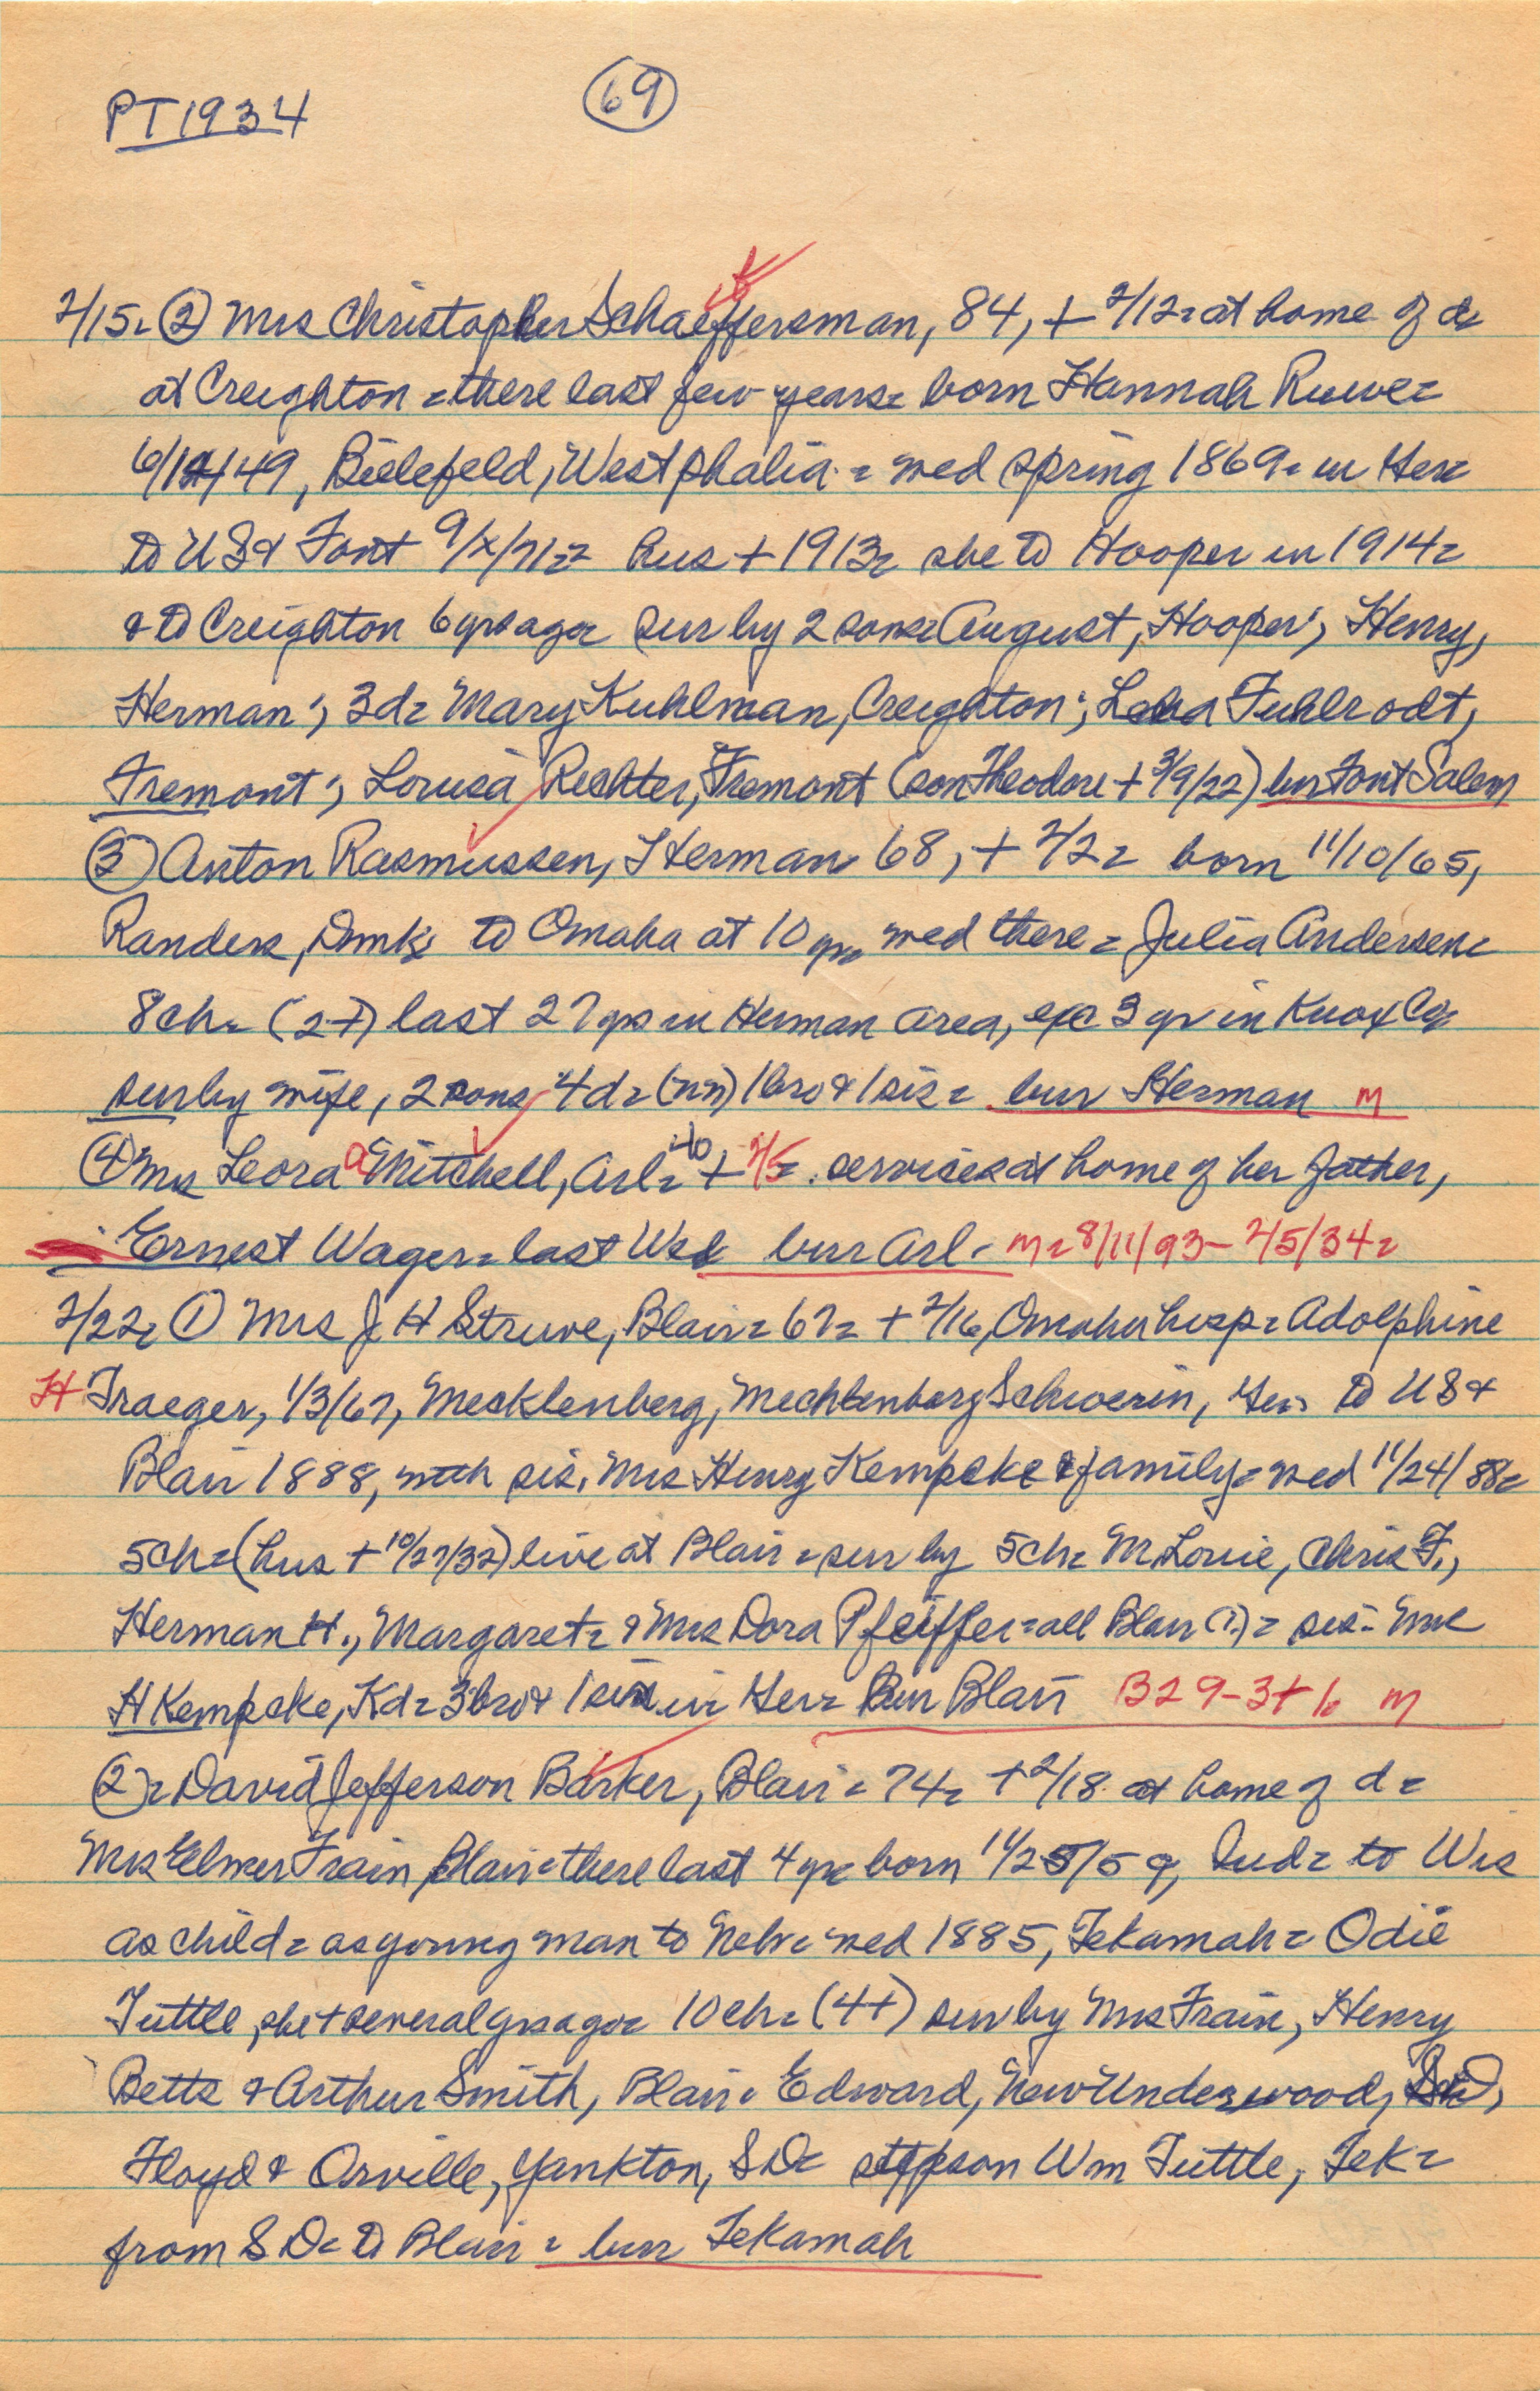 PT 1934
69
2/15= ② Mrs Christopher Schaeffersman, 84, + 2/12= at home of d=
at Creighton = there last few years= born Hannah Ruwe=
6/14/49, Bielefeld, Westphalia = med spring 1869= in Ger=
to US & Font 9/x/71== hus + 1913= she to Hooper in 1914=
& to Creighton 6 yrs ago= sur by 2 sons= August, Hooper; Henry,
Herman; 3d= Mary Kuhlman, Creighton; Lena Fuhlrodt,
Fremont; Louisa Richter, Fremont (son Theodore + 3/9/22) bur Font Salem
③ Anton Rasmussen, Herman 68, + 2/2= born 11/10/65,
Randers, Dmk= to Omaha at 10 yrs med there = Julia Andersen=
8ch= (2+) last 27 yrs in Herman area, exc 3 yr in Knox Co=
sur by wife, 2 sons 4d= (nn) 1 bro & 1 sis= bur Herman m
④ Mrs Leora a Mitchell, Arl= 40 + 2/5= services at home of her father,
Ernest Wager= last Wed bur Arl - m= 8/11/93 - 2/5/34=
2/22= ① Mrs J H Struve, Blair= 67= + 2/16, Omaha hosp= Adolphine
H Traeger, 1/3/67, Mecklenberg, Mechlenborg Schwerin, Ger= to US &
Blair 1888, with sis, Mrs Henry Kempcke & family= med 11/24/88=
5ch= (hus + 10/27/32) live at Blair = sur by 5ch= M Louie, Chris F.,
Herman H., Margaret= & Mrs Dora Pfeiffer= all Blair (?) = sis- Mrs
H Kempcke, Kd= 3 bro & 1 sis in Ger= Bur Blair B29-3+ m
②= David Jefferson Barker, Blair= 74= + 2/18 at home of d=
Mrs Elmer Train, Blair= there last 4 yr= born 11/25/59, Ind= to Wis
as child= as young man to Nebr= med 1885, Tekamah= Odie
Tuttle, she + several yrs ago= 10ch= (4+) sur by Mrs Train, Henry
Betts & Arthur Smith, Blair= Edward, New Underwood, SD,
Floyd & Orville, Yankton, SD= stepson Wm Tuttle, Tek=
from SD= to Blair = bur Tekamah